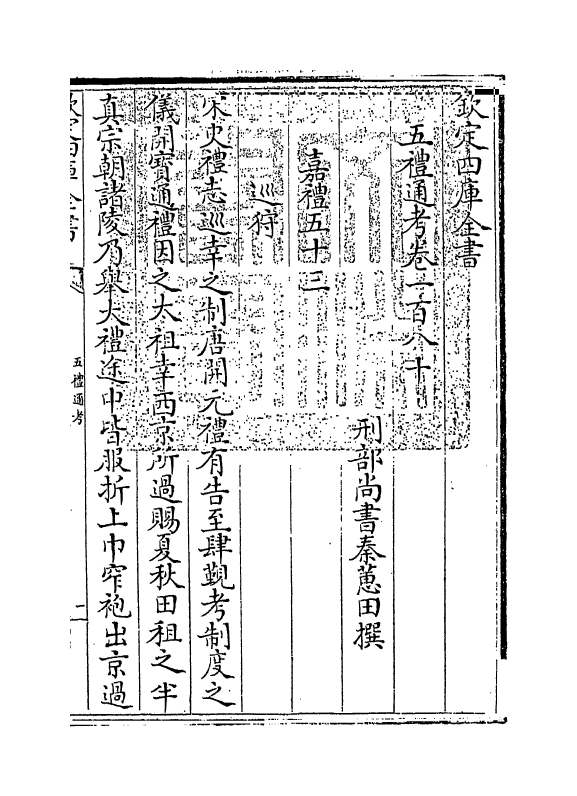 欽定四庫全書
五禮通考卷一百八十
刑部尚書秦蕙田撰
嘉禮五十三
巡狩
宋史禮志巡幸之制唐開元禮有告至肆覲考制度之
儀開寶通禮因之太祖幸西京所過賜夏秋田租之半
真宗朝諸陵乃舉大禮途中皆服折上巾窄袍出京過
五禮通考